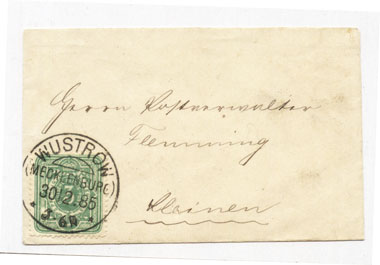 Herrn Postverwalter
Flemming
Kleinen
WUSTROW
(MECKLENBURG)
30/12.85